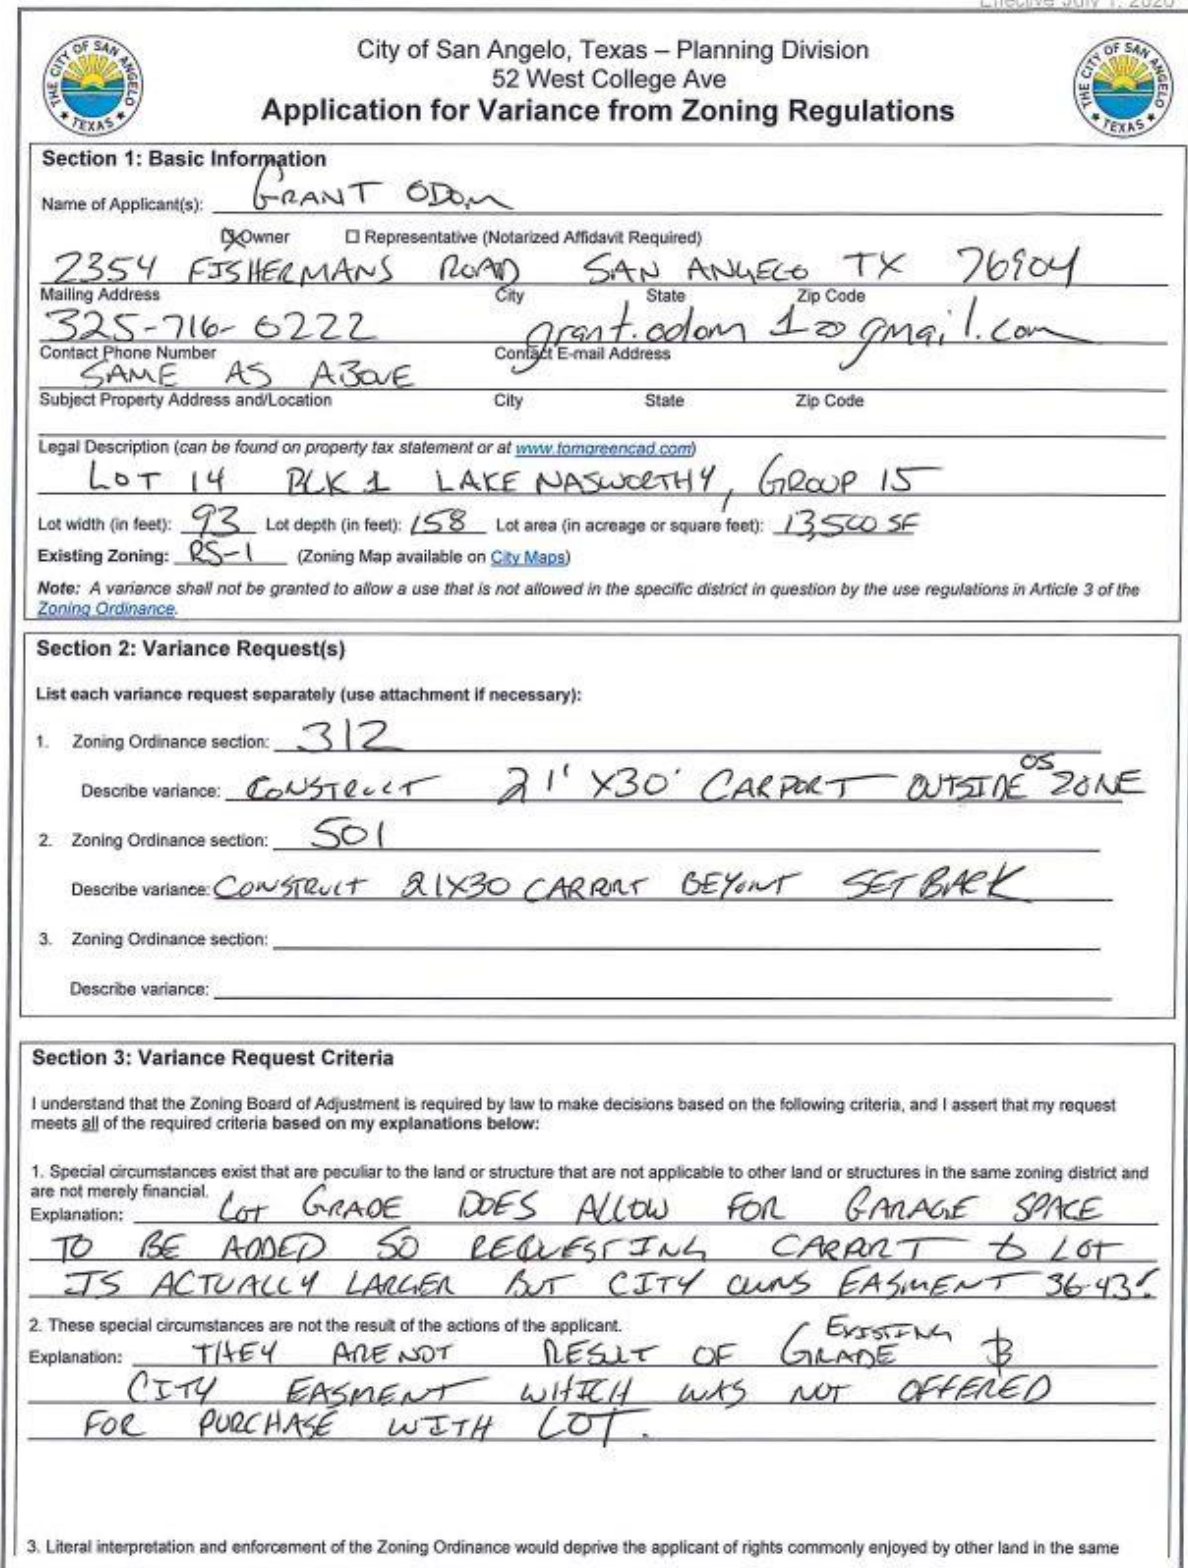 Effective July 1, 2020
THE CITY OF SAN ANGELO
TEXAS
City of San Angelo, Texas – Planning Division
52 West College Ave
Application for Variance from Zoning Regulations
THE CITY OF SAN ANGELO
TEXAS
Section 1: Basic Information
Name of Applicant(s): GRANT ODOM
☒ Owner ☐ Representative (Notarized Affidavit Required)
2354 FISHERMANS ROAD SAN ANGELO TX 76904
Mailing Address City State Zip Code
325-716-6222 grant.odom 1@gmail.com
Contact Phone Number Contact E-mail Address
SAME AS ABOVE
Subject Property Address and/Location City State Zip Code
Legal Description (can be found on property tax statement or at www.tomgreencad.com)
LOT 14 BLK 1 LAKE NASWORTHY, GROUP 15
Lot width (in feet): 93 Lot depth (in feet): 158 Lot area (in acreage or square feet): 13,500 SF
Existing Zoning: RS-1 (Zoning Map available on City Maps)
Note: A variance shall not be granted to allow a use that is not allowed in the specific district in question by the use regulations in Article 3 of the
Zoning Ordinance.
Section 2: Variance Request(s)
List each variance request separately (use attachment if necessary):
1. Zoning Ordinance section: 312
Describe variance: CONSTRUCT 21' X30' CARPORT OUTSIDE OS ZONE
2. Zoning Ordinance section: 501
Describe variance: CONSTRUCT 21X30 CARPORT BEYONT SETBACK
3. Zoning Ordinance section:
Describe variance:
Section 3: Variance Request Criteria
I understand that the Zoning Board of Adjustment is required by law to make decisions based on the following criteria, and I assert that my request
meets all of the required criteria based on my explanations below:
1. Special circumstances exist that are peculiar to the land or structure that are not applicable to other land or structures in the same zoning district and
are not merely financial.
Explanation: LOT GRADE DOES ALLOW FOR GARAGE SPACE
TO BE ADDED SO REQUESTING CARPORT & LOT
IS ACTUALLY LARGER BUT CITY OWNS EASMENT 36-43'.
2. These special circumstances are not the result of the actions of the applicant.
Explanation: THEY ARE NOT RESULT OF EXISTING GRADE &
CITY EASMENT WHICH WAS NOT OFFERED
FOR PURCHASE WITH LOT.
3. Literal interpretation and enforcement of the Zoning Ordinance would deprive the applicant of rights commonly enjoyed by other land in the same